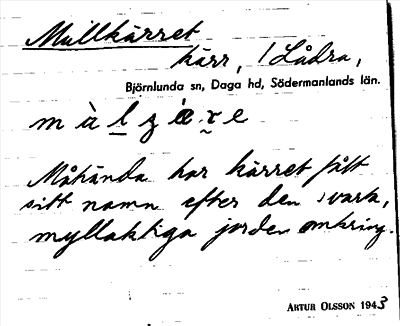 Mullkärret
kärr, / Lådra,
Björnlunda sn, Daga hd, Södermanlands län.
Måhända har kärret fått
sitt namn efter den svarta,
myllaktiga jorden omkring.
ARTUR OLSSON 1943